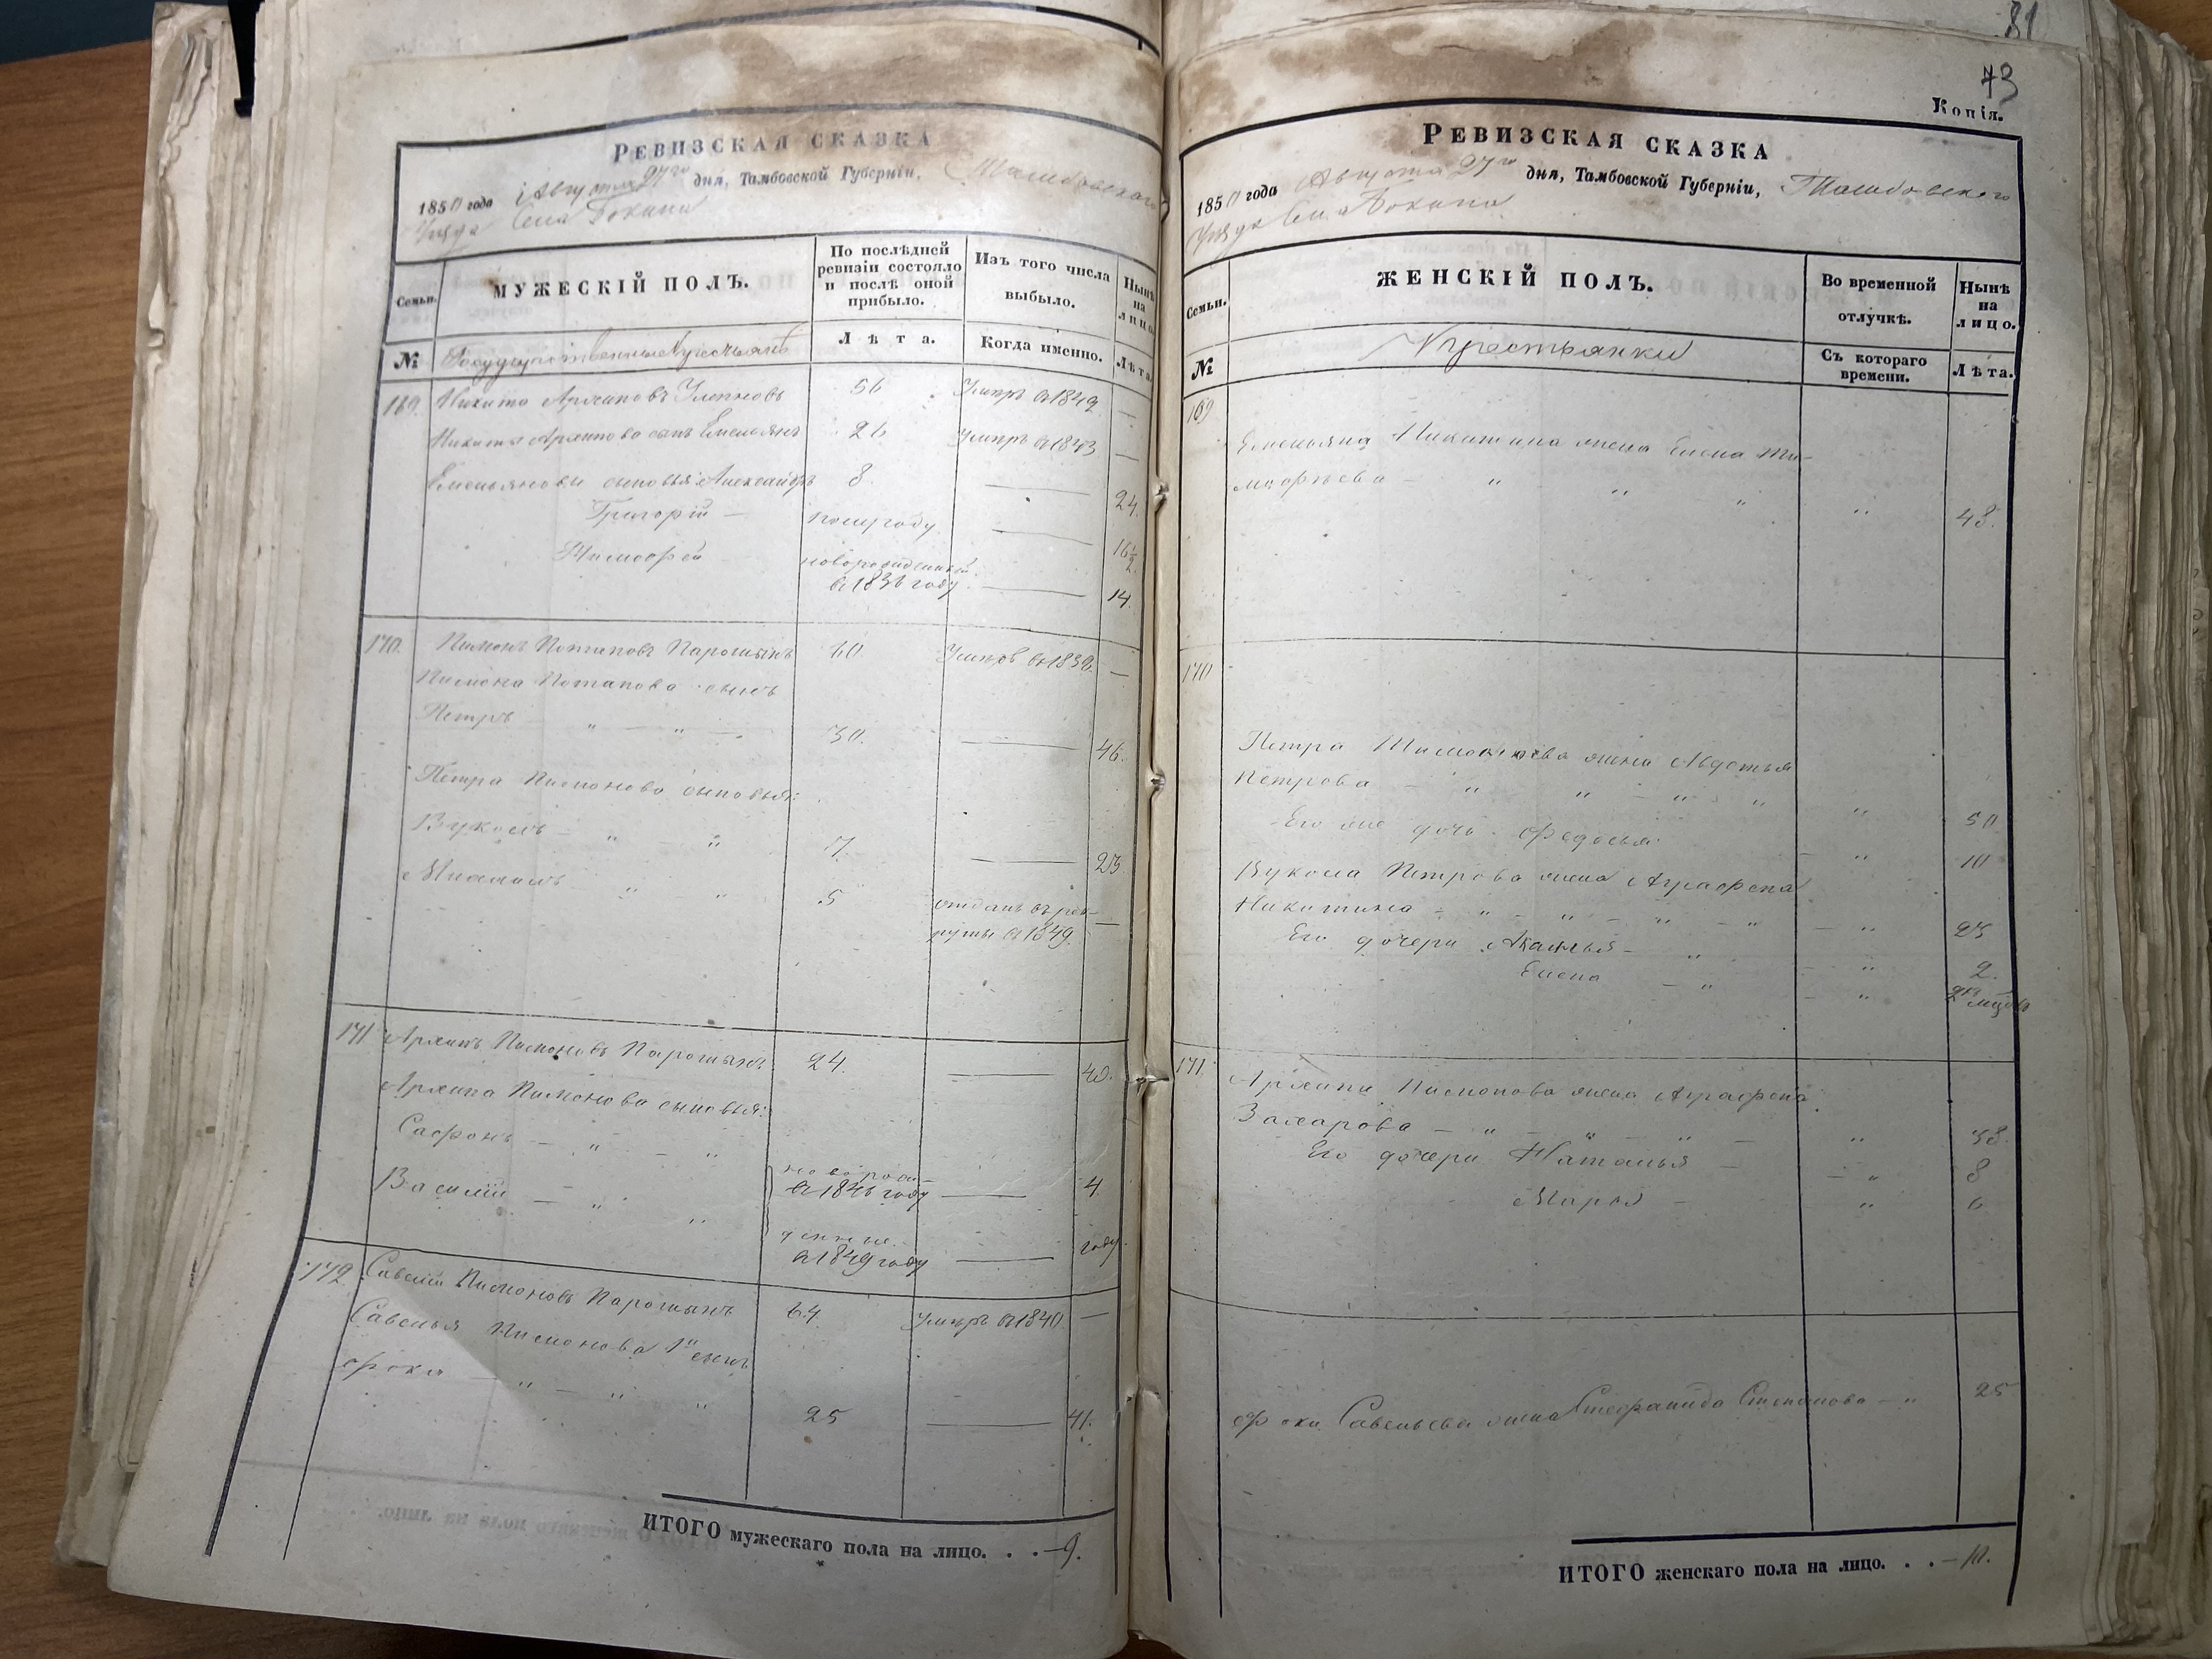 81
73
РЕВИЗСКАЯ СКАЗКА
1850 года Августа 27го дня, Тамбовской Губерніи, Тамбовскаго
Уѣзда Села Бокина
Семьи.
МУЖЕСКІЙ ПОЛЪ.
По послѣдней ревизіи состояло и послѣ оной прибыло.
Изъ того числа выбыло.
Нынѣ на лицо.
№
Государственные Крестьяне
Лѣта.
Когда именно.
Лѣта.
169. Никита Архиповъ 56 Умеръ въ 1849. —
Никиты Архипова сынъ Емельянъ 26 Умеръ въ 1843 —
Емельяновы сыновья: Александръ 8. — 24.
Григорій — полугоду — 16½
Тимофей новорожденный
въ 1836 году — 14.
170. Пимонъ Потаповъ Парошынъ 60. Умеръ въ 1839. —
Пимона Потапова сынъ
Петръ — " — " — 30. — 46.
Петра Пимонова сыновья:
Вуколъ — " " 7. — 23
Михаилъ " " 5 отданъ въ рек-
руты въ 1849. —
171 Архипъ Пимоновъ Парошынъ 24. — 40.
Архипа Пимонова сыновья:
Сафронъ — " — " новорож-
въ 1846 году — 4.
Василій — " " денные.
въ 1849 году — году.
172. Савелій Пимоновъ Парошынъ 64 Умеръ въ 1840. —
Савелья Пимонова 1й сынъ
Фока — " — " " 25 — 41.
ИТОГО мужескаго пола на лицо. . . — 9.
Копія.
РЕВИЗСКАЯ СКАЗКА
1850 года Августа 27го дня, Тамбовской Губерніи, Тамбовскаго
Уѣзда Села Бокина
Семьи.
ЖЕНСКІЙ ПОЛЪ.
Во временной отлучкѣ.
Нынѣ на лицо.
№
Крестьянки
Съ котораго времени.
Лѣта.
169
Емельяна Никитина жена Елена Ти-
мофѣева — " " " " 48.
170
Петра жена Авдотья
Петрова — " " — " " " 50
Его же дочь Федосья " 10
Вукола Петрова жена Аграфена
Никитина — " — " — " — " — " 25
Его дочери Акулина — " " 2.
Елена — " — "
171.
Архипа Пимонова жена Аграфена
Захарова — " — " — " — " 38.
Его дочери Наталья — — " 8
Марья — " 6
Фоки Савельева жена Степанида Степанова — " 25
ИТОГО женскаго пола на лицо. . . — 10.